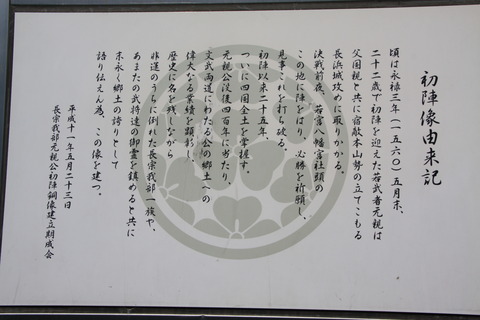 初陣像由来記
頃は永禄三年(一五六〇)五月末、
二十二歳で初陣を迎えた若武者元親は
父国親と共に宿敵本山勢の立てこもる
長浜城攻めに取りかかる。
決戦前夜、若宮八幡宮社頭の
この地に陣をはり、必勝を祈願し、
見事これを打ち破る。
初陣以来二十五年、
ついに四国全土を掌握す。
元親公没後四百年に当たり、
文武両道にわたる公の郷土への
偉大なる業績を顕彰し、
歴史に名を残しながら
非運のうちに倒れた長宗我部一族や、
あまたの武将達の御霊を鎮めると共に
末永く郷土の誇りとして
語り伝えん為、この像を建つ。
平成十一年五月二十三日
長宗我部元親公初陣銅像建立期成会